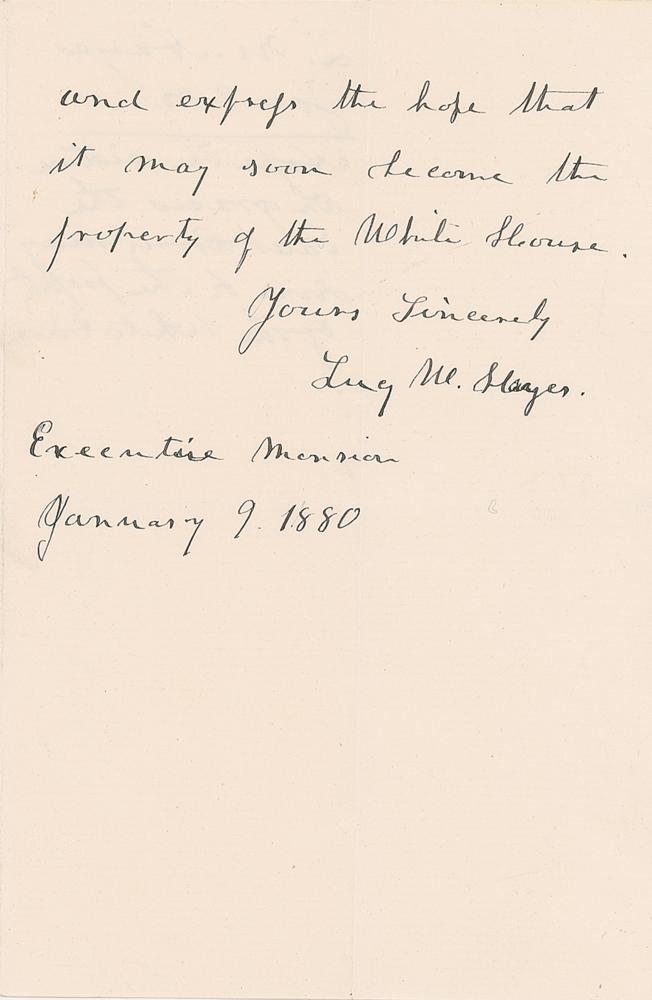 and express the hope that
it may soon become the
property of the White House.
Yours Sincerely
Lucy W. Hayes.
Executive Mansion
January 9. 1880